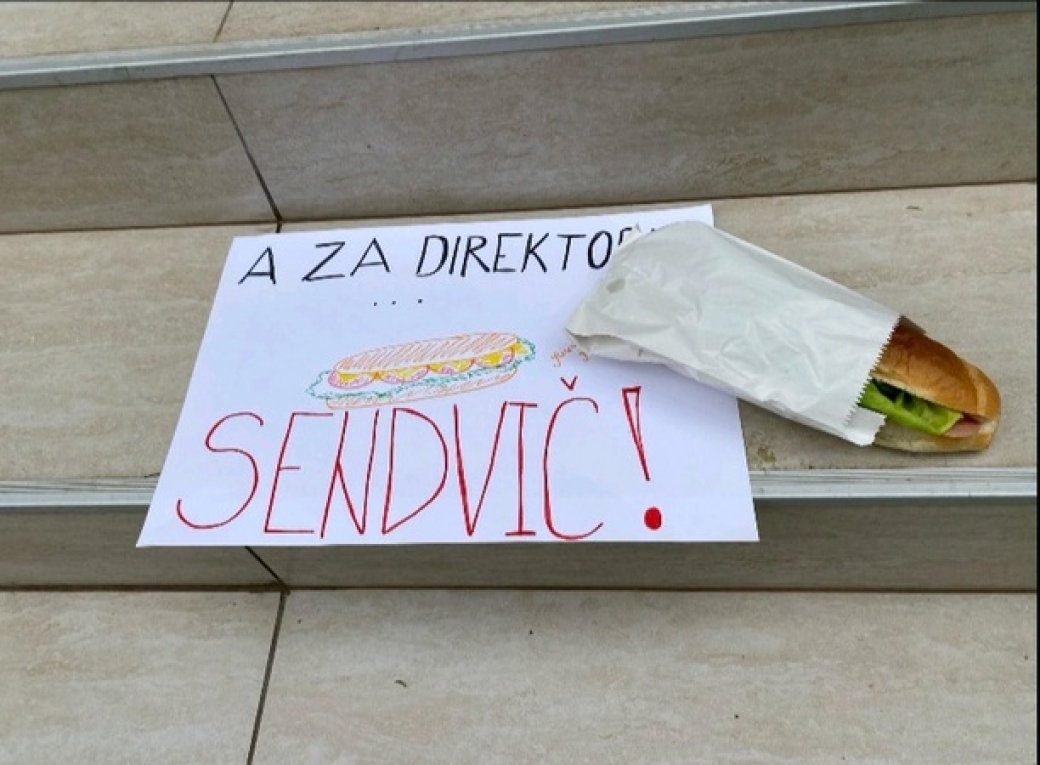 A ZA DIREKTO
...
SENDVIČ!